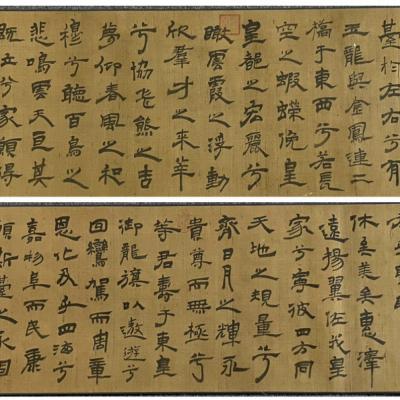 臺於左右兮有
玉龍與金鳳連二
橋于東西兮若長
空之蝦蝀俛皇
皇都之宏麗兮
瞰雲霞之浮動
欣羣才之來萃
兮協飛熊之吉
夢仰春風之和
穆兮聽百鳥之
悲鳴雲天亘其
既立兮家願得
休矣美矣惠澤
遠揚翼佐我皇
家兮寧彼四方同
天地之規量兮
齊日月之輝永
貴尊而無極兮
等君壽于東皇
御龍旂以遨遊兮
回鸞駕而周章
恩化及乎四海兮
嘉物阜而民康
願斯臺之永固